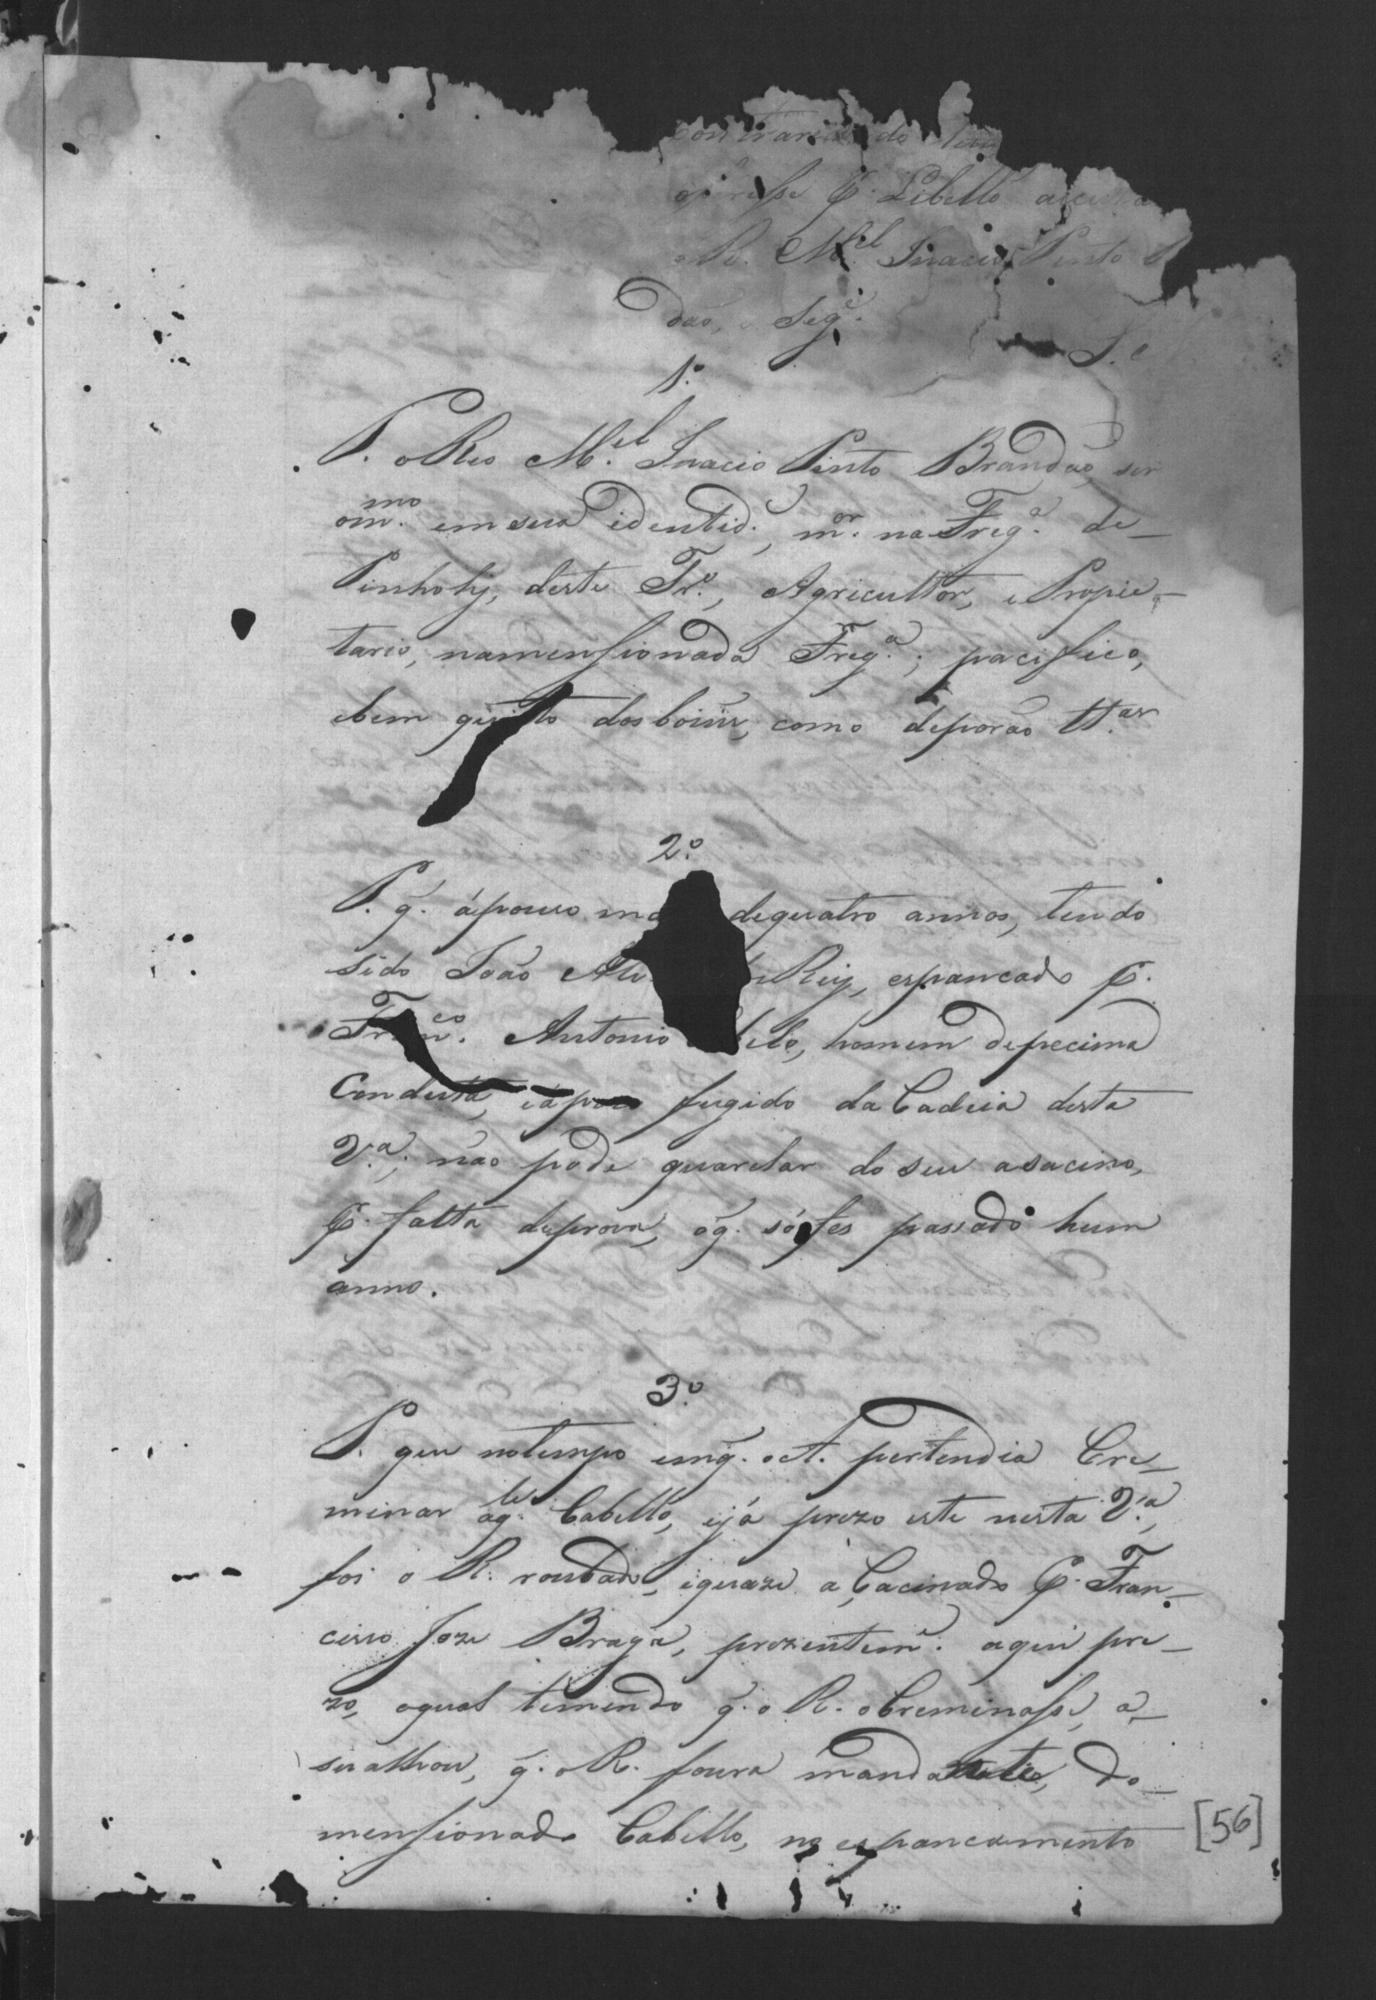 contrariedo
Libello
R. M.el Inacio Pinto
dão, e Seg.e
S. e
1.º
P. o Reo M.el Inacio Pinto Brandão, ser
omº. em sua identid.e, m.or na Freg.a de
Pinhoty, deste Tr.º, Agricultor, e Propie-
tario, namensionada Freg.a; pacifico,
ebem quisto dosboins, como deporão tt.as
2.º
P. q̃. ápouco ma dequatro annos, tendo
sido João Alv Reiz, espancado p.
Fran.co Antonio belo, homem depecima
Conduta, eapoco fugido da Cadeia desta
V.a; não pode querelar do seu asacino,
p. falta deprova, oq̃. só fes passado hum
anno.
3.º
P. que notempo emq̃. o A. pertendia Cre-
minar aq.le Cabello, ejá prezo este nesta V.a,
foi o R. roubado, equaze aÇacinado p. Fran-
cisco Joze Braga, prezentem.e aqui pre-
zo, oqual temendo q̃. o R. oCreminasse, a-
sualhou, q̃. o R. foura mandante, do
mensionado Cabello, no espancamento
[56]